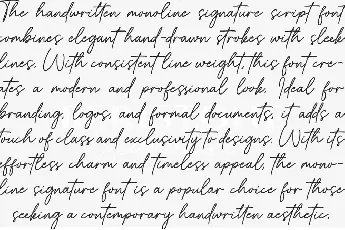 The handwritten monoline signature script font
combines elegant hand-drawn strokes with sleek
lines. With consistent line weight, this font cre-
ates a modern and professional look. Ideal for
branding, logos, and formal documents, it adds a
touch of class and exclusivity to designs. With its
effortless charm and timeless appeal, the mono-
line signature font is a popular choice for those
seeking a contemporary handwritten aesthetic.